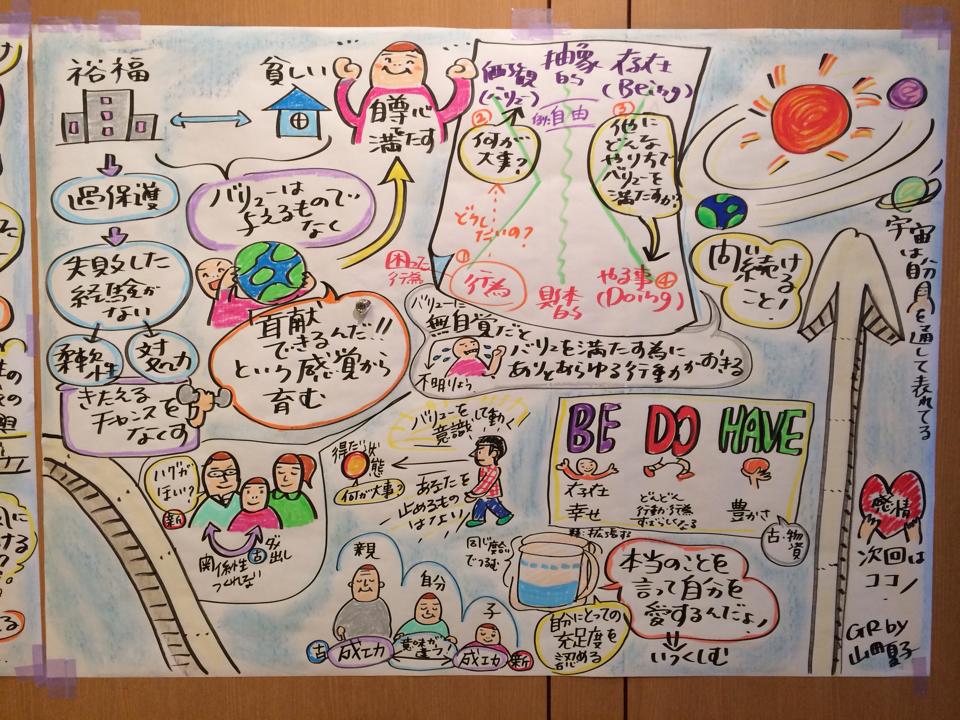 裕福
貧しい
自尊心
満たす
過保護
失敗した
経験が
ない
柔軟性
対応力
きたえる
チャンスを
なくす
バリューは
もので
与えるもの
なく
「貢献
できるんだ!!
という感覚から
育む
価値観
(バリュー)
抽象
的
存在
(Being)
例:自由
②
何が
大事?
③
他に
どんな
やり方で
バリューを
満たすか?
どうし
たいの?
①
行為
困った
行為
具体
的
やる事④
(Doing)
バリューに
無自覚だと
不明りょう
バリューを満たす為に
ありとあらゆる行動がおきる
問い
続ける
こと!
宇宙は自分を通して表れてる
バリューを
意識して動く
得たい状態
何が大事?
あなたを
止めるもの
はない
BE DO HAVE
存在
幸せ
どんどん
豊かさ
古:物質
ハグが
ほしい?
新
古
ダメ出し
関係性
つくれない
親
自分
子
古
成功
意味が
ちがう!
成功
新
自分にとっての
充足度を
認める
本当のことを
言って自分を
愛するんだよ!
いつくしむ
感情
次回は
ココ!
GR by
山田夏子